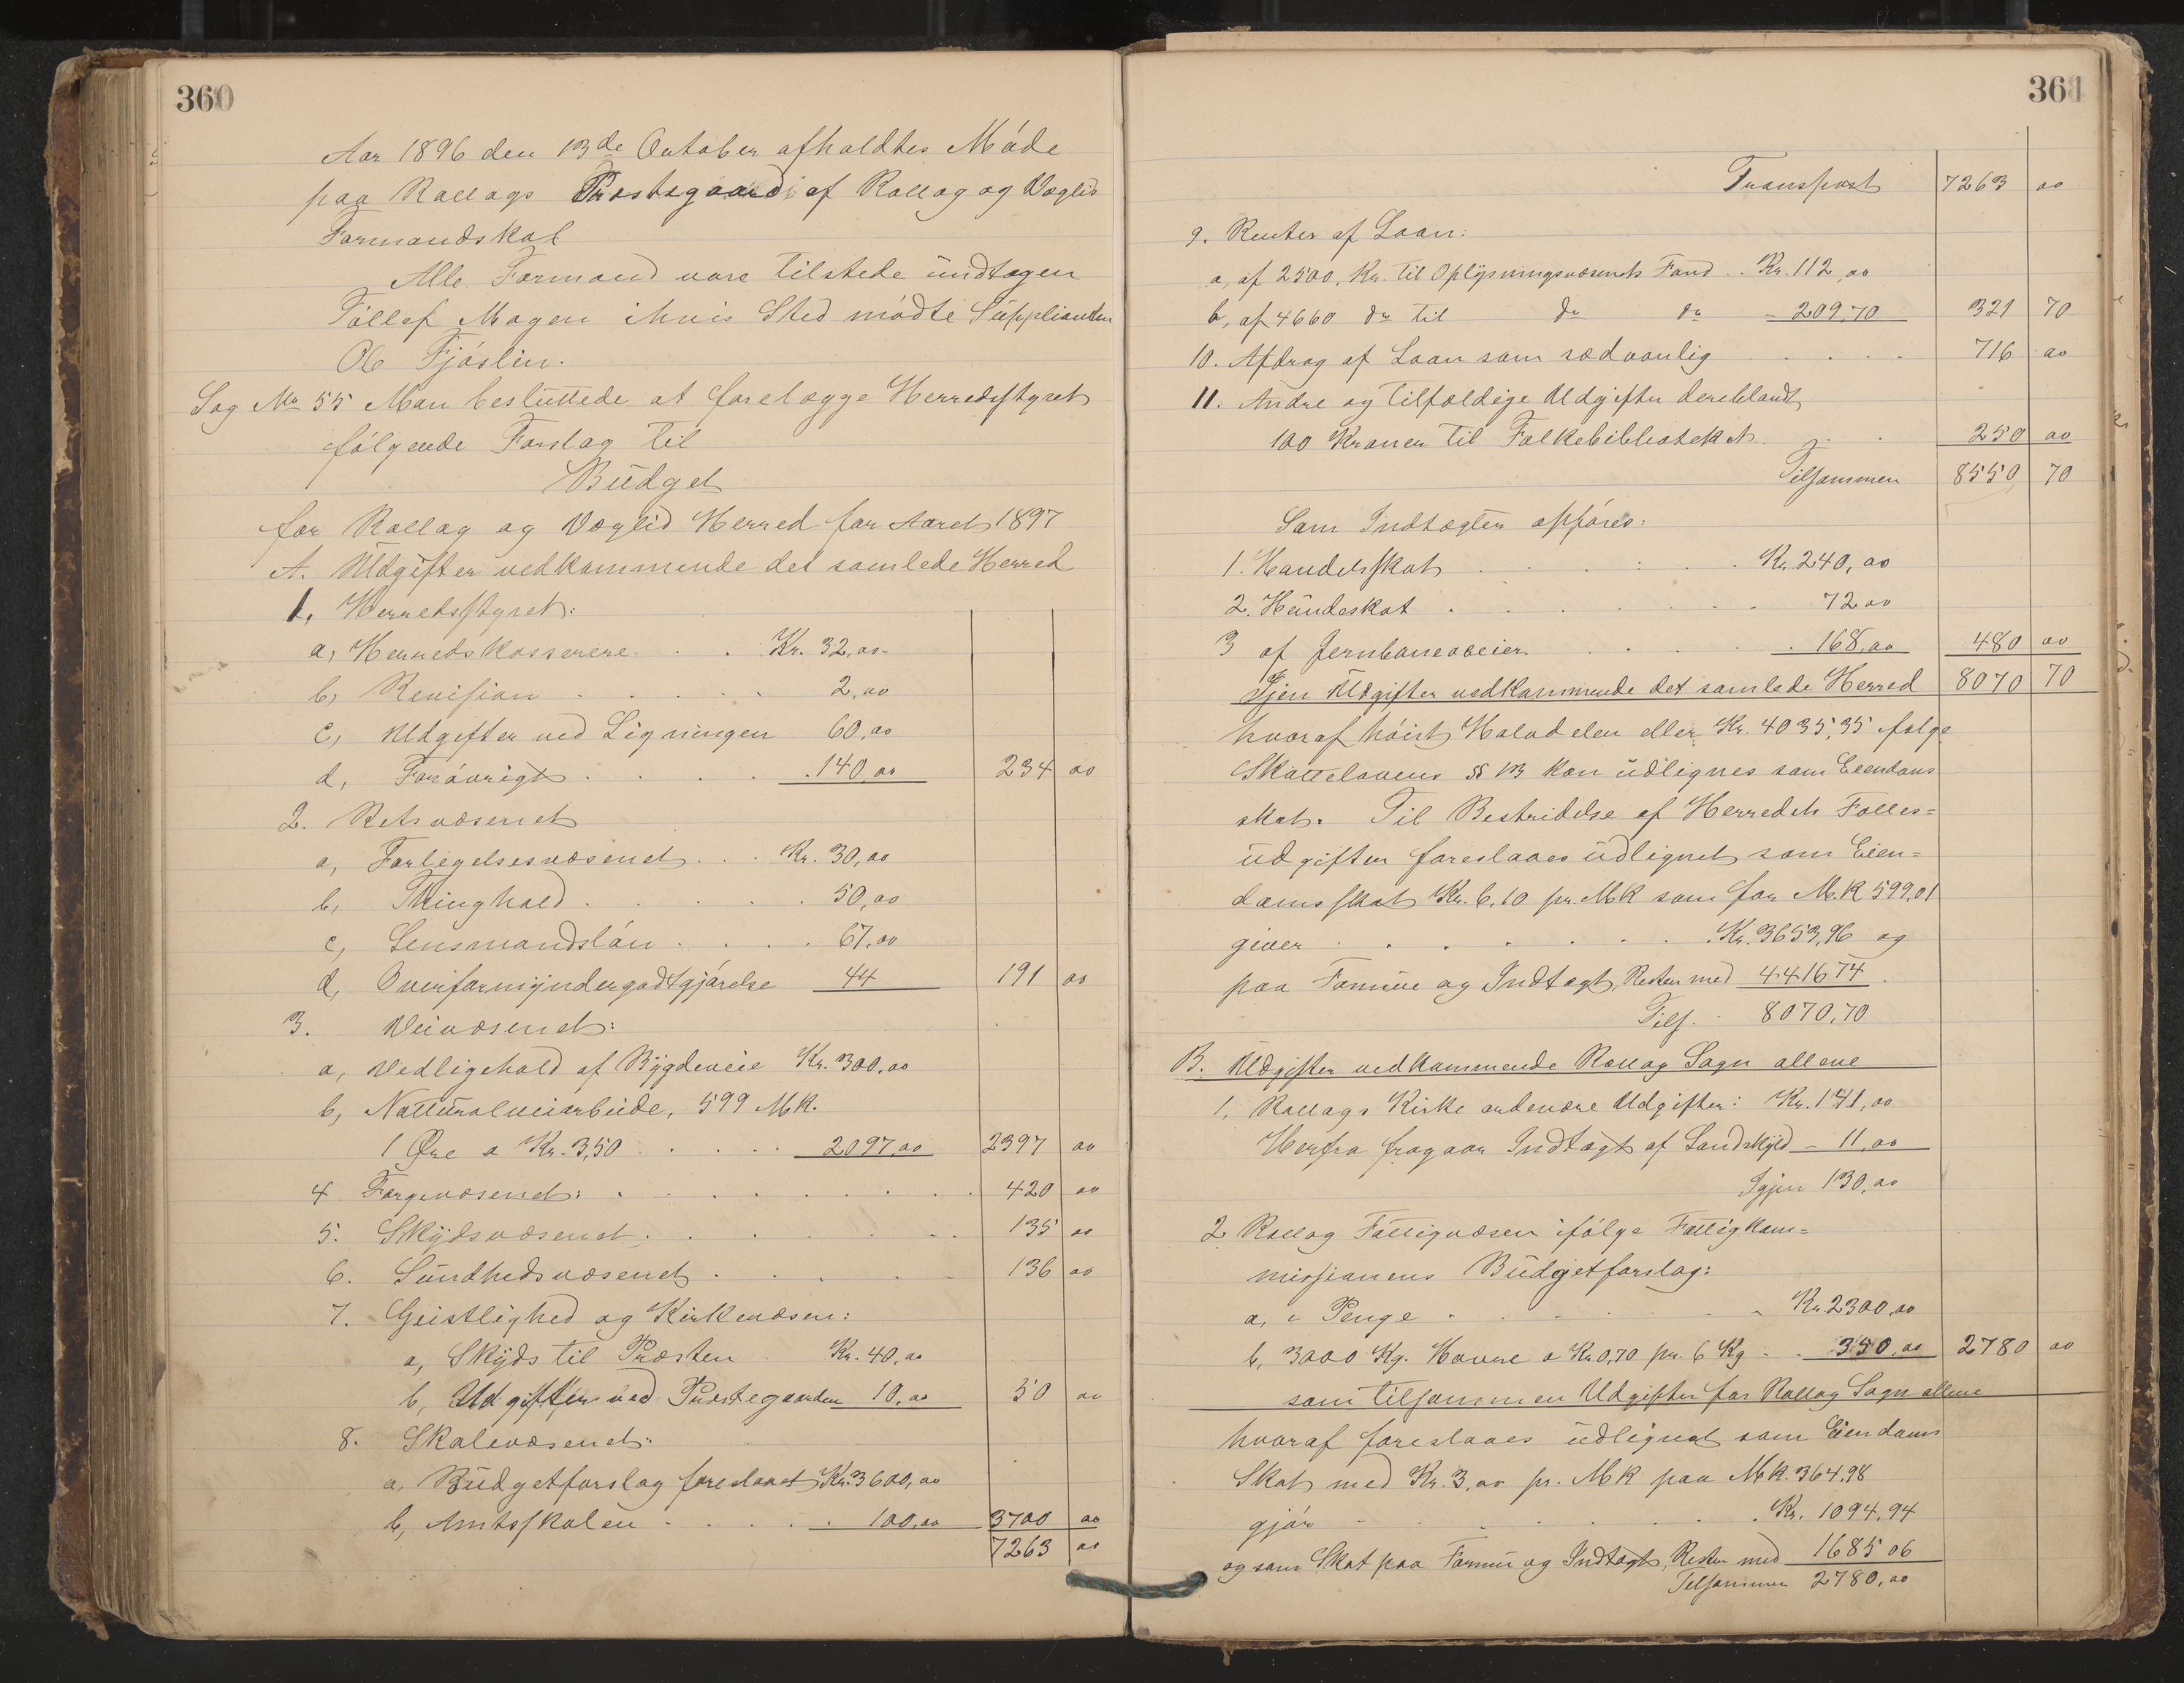 360
Aar 1896 den 13de October afholdtes Møde
paa Rollags Præstegaard af Rollag og Væglid
Formandskab
Alle Formænd vare tilstede undtagen
Tollef Mogen i hvis Sted mødte Supplianten
Ole Fjøslin.
Sag No 55 Man besluttede at forelægge Herredsstyret
følgende Forslag til
Budget
for Rollag og Væglid Herred for Aaret 1897
A. Udgifter vedkommende det samlede Herred
1. Herredsstyret:
a, Herredskasserere . . Kr. 32,00
b, Revision . . . . . 2,00
c, Udgifter ved Ligningen 60,00
d, Forøvrigt . . . . 140,00 234 00
2. Retsvæsenet
a, Forligelsesvæsenet . . . Kr. 30,00
b, Thinghold . . . . . 50,00
c, Lensmandsløn . . . . 67,00
d, Overformyndergodtgjørelse 44 191 00
3. Veivæsenet:
a, Vedligehold af Bygdeveie Kr. 300,00
b, Natturalveiarbeide, 599 MK.
1 Øre a Kr. 3,50 . . . . . 2097,00 2397 00
4 Færgevæsenet: . . . . . . . . 420 00
5. Skydsvæsenet . . . . . . . 135 00
6. Sundhedsvæsenet . . . . . 136 00
7. Geistlighed og Kirkevæsen:
a, Skyds til Præsten Kr. 40,00
b, Udgifter ved Præstegaarden 10,00 50 00
8. Skolevæsenet:
a, Budgetforslag foreslaaet Kr. 3600,00
b, Amtsskolen . . . . . 100,00 3700 00
7263 00
361
Transport 7263 00
9. Renter af Laan:
a, af 2500, Kr. til Oplysningsvæsenets Fond . . Kr. 112,00
b, af 4660 do til do do - 209,70 321 70
10. Afdrag af Laan som sædvanlig . . . . . 716 00
11. Andre og tilfældige Udgifter deriblandt
100 Kroner til Folkebibliotheket . . . 250 00
Tilsammen 8550, 70
Som Indtægter opføres:
1. Handelsskat . . . . . . Kr. 240,00
2. Hundeskat . . . . . . . 72 00
3 af Jernbaneaccier . . . . . 168,00 480 00
Igjen Udgifter vedkommende det samlede Herred 8070 70
hvoraf høist Halvdelen eller Kr. 4035,35 følge
Skattelovens § 13 kan udlignes som Eiendoms
skat. Til Bestridelse af Herredets Fælles=
udgifter foreslaaes udlignet som Eien=
domsskat Kr. 6,10 pr. MK som for M.K 599,01
giver . . . . . . . Kr. 3653,96 og
paa Formue og Indtægt, Resten med 4416 74
Tils. 8070,70
B. Udgifter vedkommende Rollag Sogn allene
1. Rollags Kirke ordenære Udgifter: Kr. 141,00
Herfra fragaar Indtægt af Landskyld - 11,00
Igjen 130,00
2 Rollag Fattigvæsen ifølge Fattigkom=
missionens Budgetforslag:
a, i Penge . . . . . . Kr. 2300,00
b, 3000 Kg. Havre a Kr 0,70 pr. 6 Kg . . 350,00 2780 00
som tilsammen Udgifter for Rollag Sogn allene
hvoraf foreslaaes udlignet som Eiendoms
Skat med Kr. 3,00 pr. MK paa MK. 364,98
gjør . . . . . . . Kr. 1094,94
og som Skat paa Formue og Indtægt, Resten med 1685 06
Tilsammen 2780,00